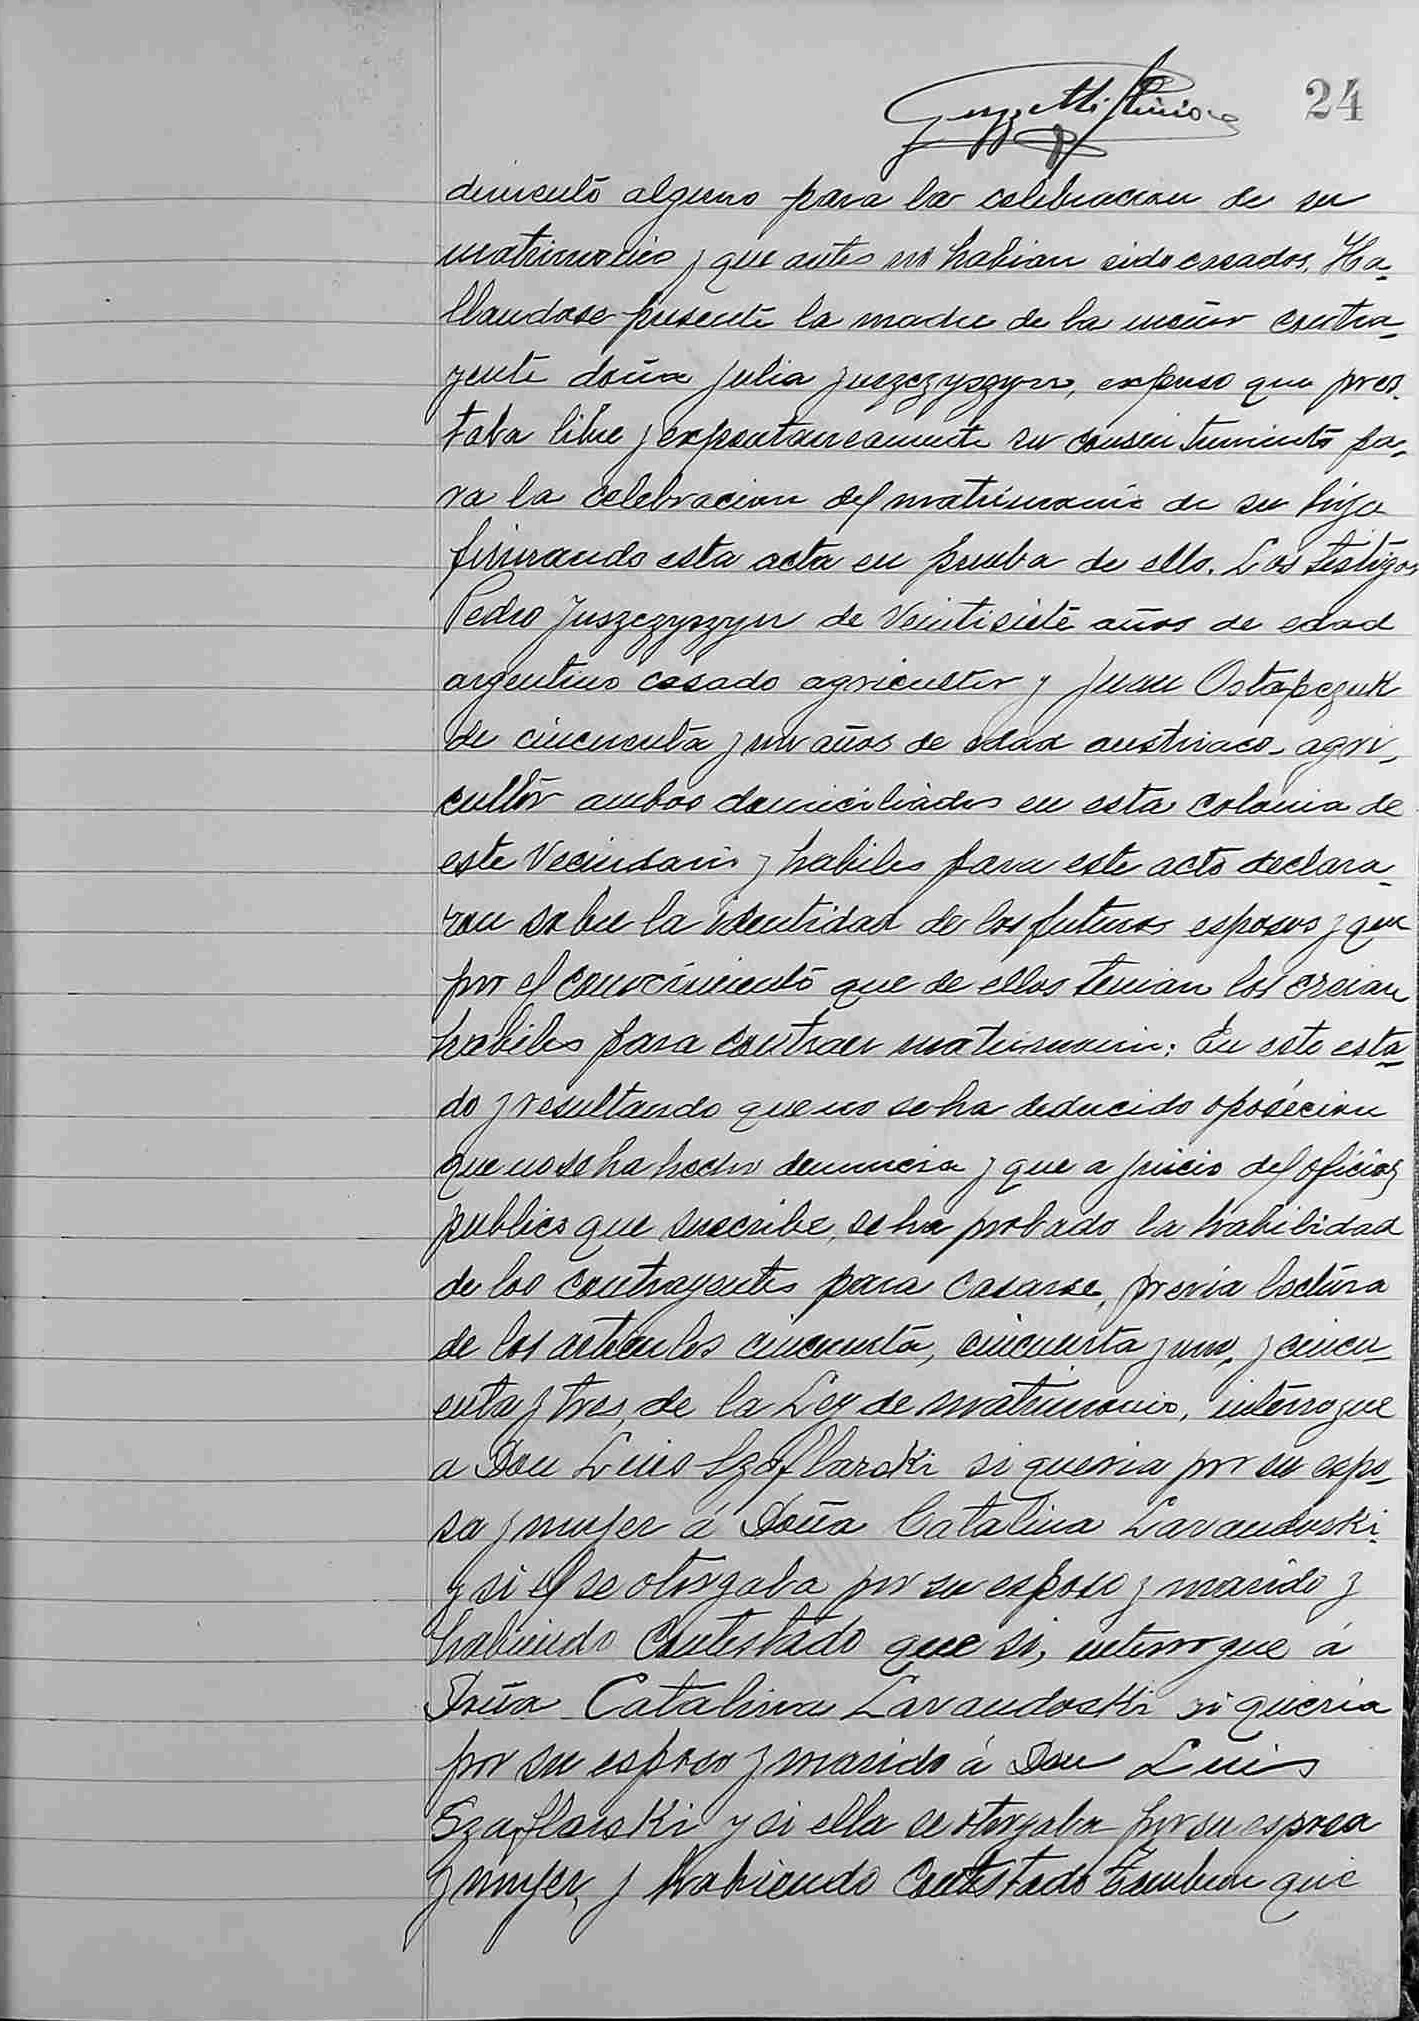 24
dimento alguno para la celebracion de su
matrimonio y que antes no habian sido casados. Ha-
llandose presente la madre de la menor contra-
yente doña Julia Juszczyszyn, expuso que pres-
taba libre y expontaneamente su consentimiento pa-
ra la celebracion del matrimonio de su hija
firmando esta acta en prueba de ello. Los testigos
Pedro Juszczyszyn de Veintisiete años de edad
argentino casado agricultor y Juan Ostapczuk
de cincuenta y un años de edad austriaco - agri-
cultor ambos domiciliados en esta colonia de
este Vecindario y habiles para este acto declara-
ron sobre la identidad de los futuros esposos y que
por el conocimiento que de ellos tenian los creian
habiles para contraer matrimonio: En este esta-
do y resultando que no se ha deducido oposicion
que no se ha hecho denuncia y que a juicio del oficial
publico que suscribe, se ha probado la habilidad
de los contrayentes para casarse, previa lectura
de los articulos cincuenta, cincuenta y uno, y cincu-
enta y tres, de la Ley de matrimonio, interrogue
a Don Luis Szaflarski si queria por su espo-
sa y mujer á Doña Catalina Lavandoski
y si el se otorgaba por su esposo y marido y
habiendo contestado que si, interrogue á
Doña Catalina Lavandoski si queria
por su esposo y marido á Don Luis
Szaflarski y si ella se otorgaba por su esposa
y mujer, y habiendo contestado tambien que